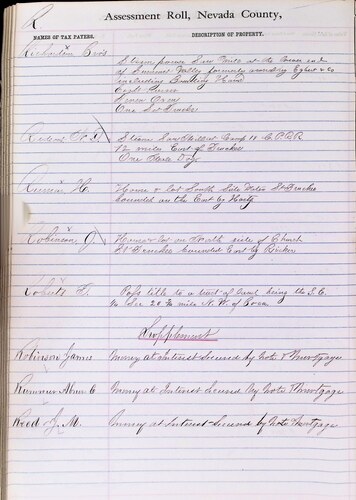 R
Assessment Roll, Nevada County,
NAMES OF TAX PAYERS.
DESCRIPTION OF PROPERTY.
Richardson Bros Steam power Saw Mill at the East end
of Summit Valley formerly owned by
including Dwelling House
Eight Horses
Seven Oxen
One Set Trucks
Steam Saw Mill at Camp 11 C.P.R.R.
1½ miles East of Truckee
One
H. House & lot South Side Main St Truckee
bounded on the East by Hart
Robinson G. House & lot on North side of Church
St Truckee bounded East by
Roberts Poss title to a tract of land being the S.E.
¼ Sec 20 ¾ mile N.W. of Boca
Supplement
Robinson James Money at Interest Secured by Note & Mortgage
Money at Interest Secured by Note & Mortgage
Reed J. M. Money at Interest Secured by Note & Mortgage